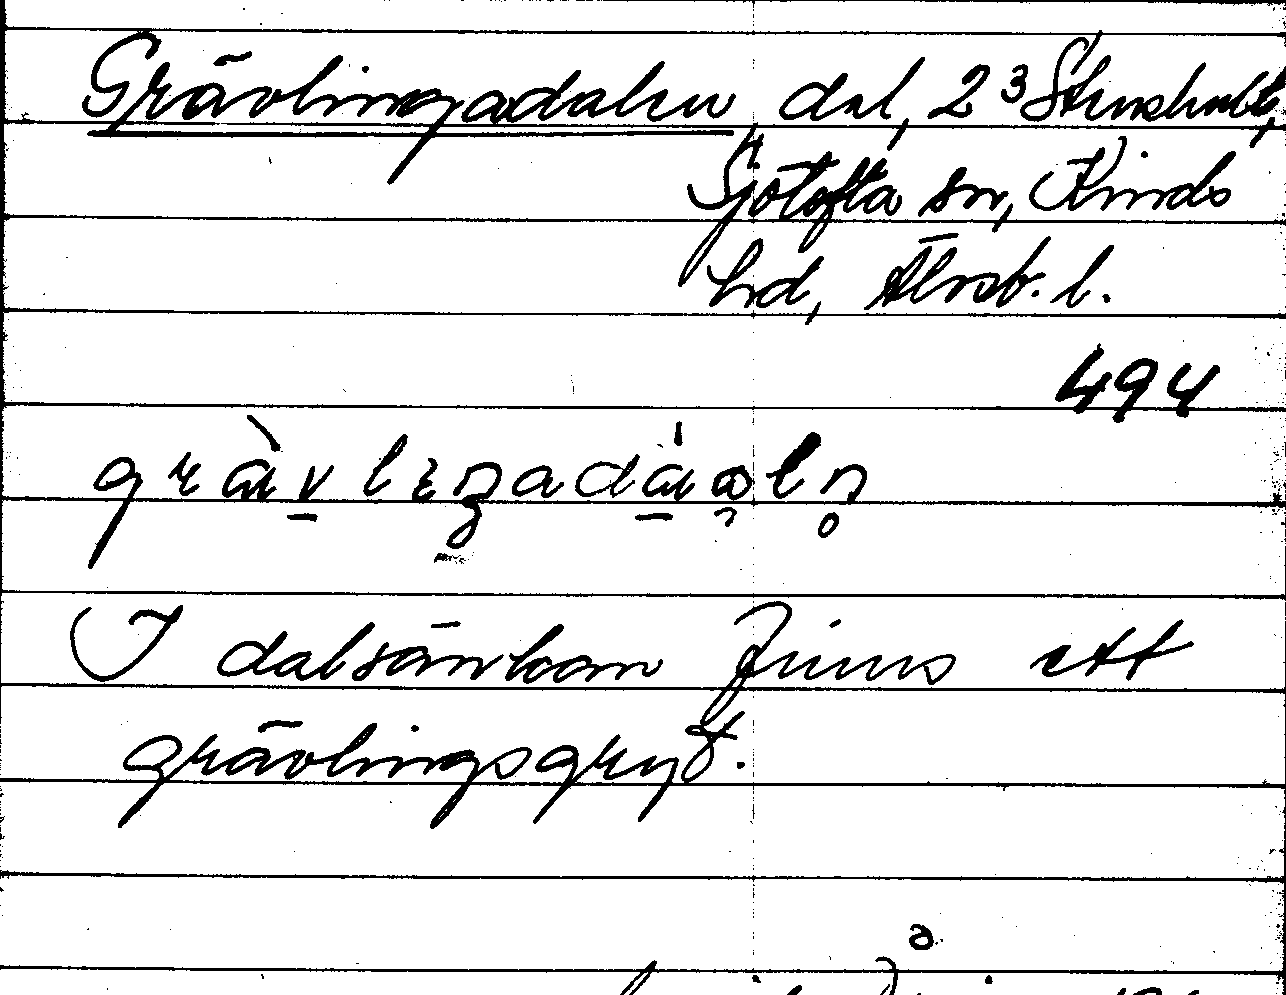 Grävlingadalen, dal, 2³ Stenshult,
Sjötofta sn, Kinds
hd, Älvsb. l.
494
I dalsänkan finns ett
grävlingsgryt.